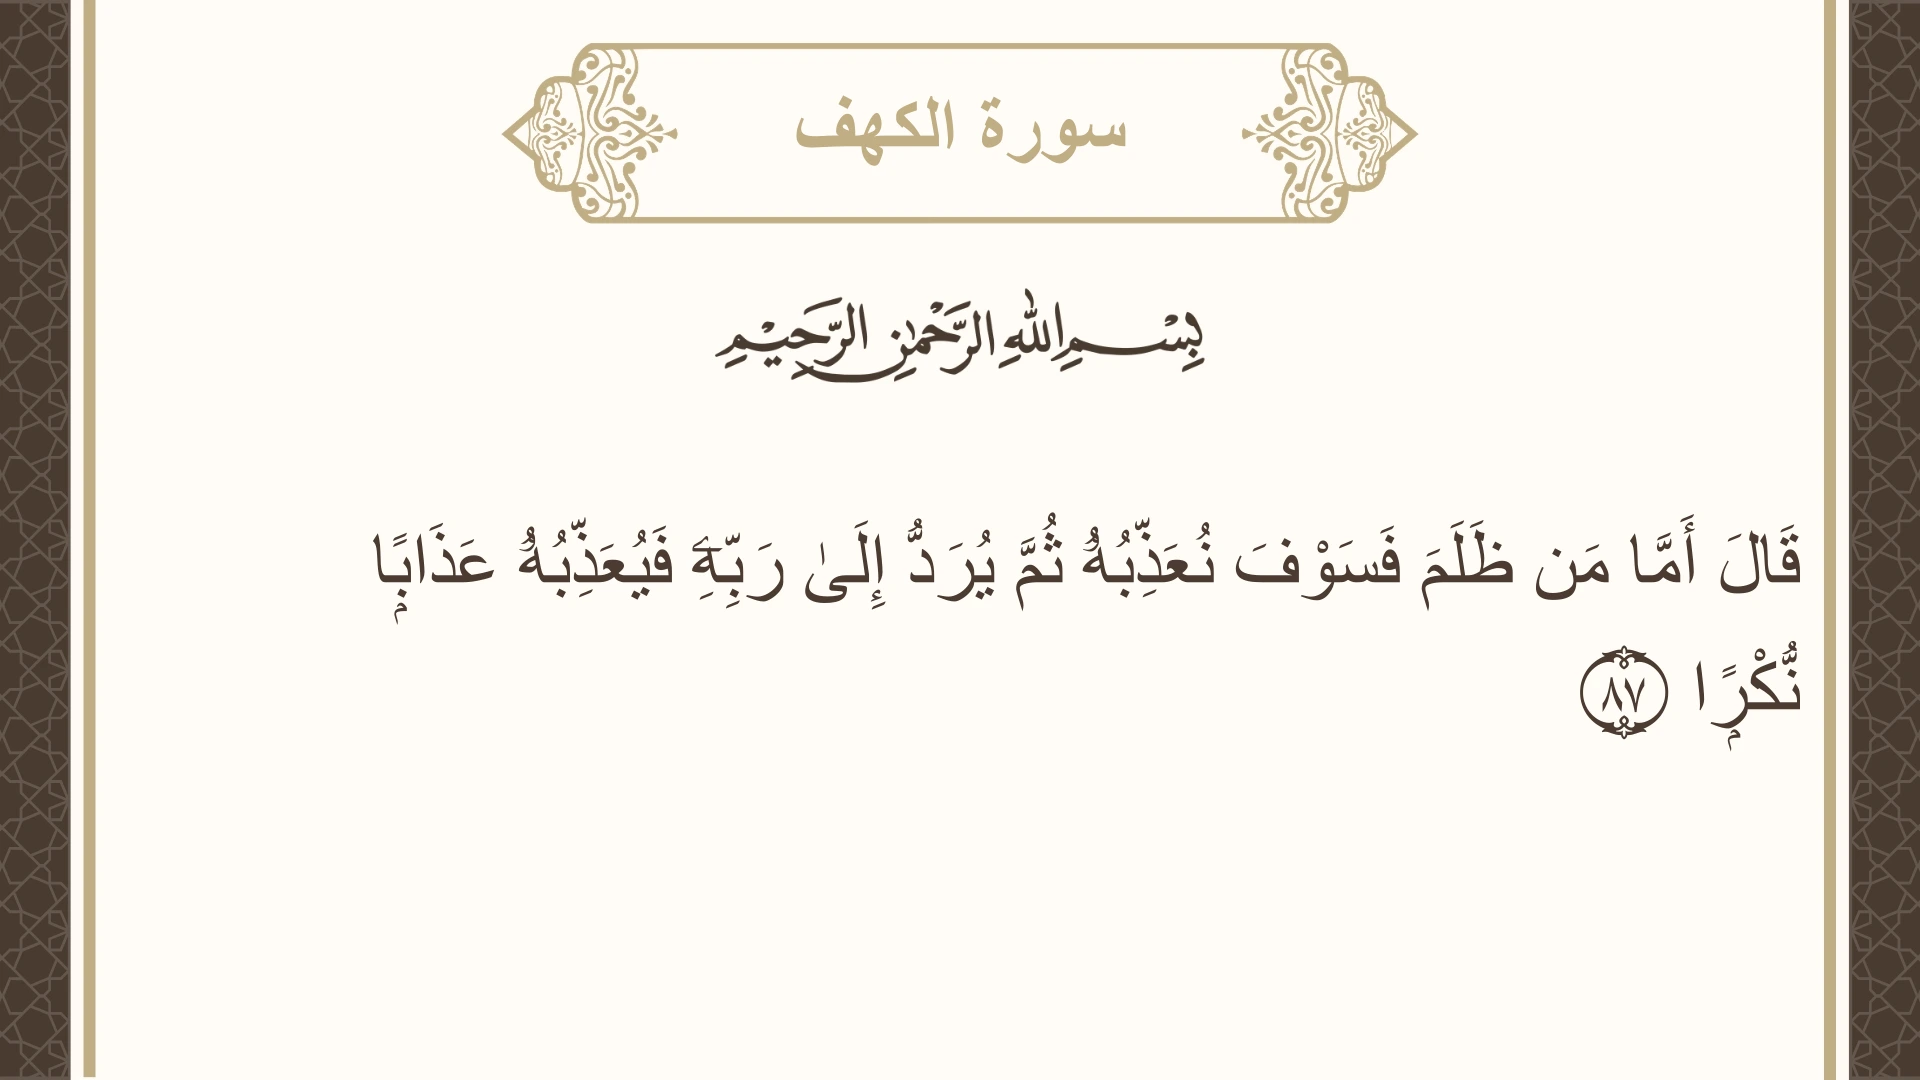 سورة الكهف
بِسْمِ اللهِ الرَّحْمٰنِ الرَّحِيْمِ
قَالَ أَمَّا مَن ظَلَمَ فَسَوْفَ نُعَذِّبُهُۥ ثُمَّ يُرَدُّ إِلَىٰ رَبِّهِۦ فَيُعَذِّبُهُۥ عَذَابًۭا
نُّكْرًۭا ٨٧